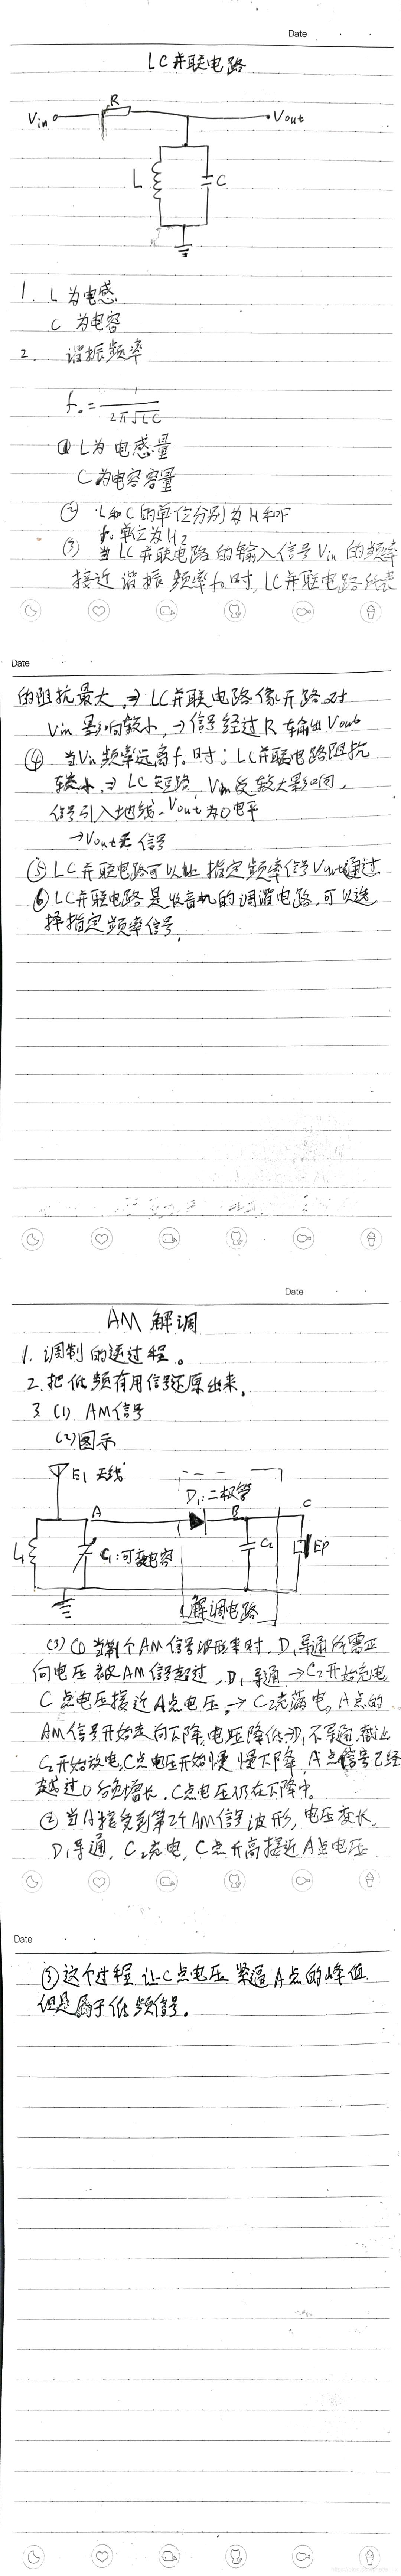 Date
LC并联电路
R
Vin
Vout
L
C
1. L为电感
C为电容
2. 谐振频率
f₀=1/2π√LC
① L为电感量
C为电容容量
② L和C的单位分别为H和F
f₀单位为Hz
③ 当LC并联电路的输入信号Vin的频率
接近谐振频率f₀时,LC并联电路
Date
的阻抗最大,⇒LC并联电路像开路.对
Vin影响较小,→信号经过R输出Vout
④ 当Vin频率远离f₀时;LC并联电路阻抗
较小,⇒LC短路,Vin受较大影响,
信号引入地线,Vout为0电平
→Vout无信号
⑤ LC并联电路可以让指定频率信号Vout通过.
⑥ LC并联电路是收音机的调谐电路,可以选
择指定频率信号,
Date
AM 解调
1. 调制的逆过程。
2. 把低频有用信号还原出来.
3. (1) AM信号
(2)图示
E1 天线
D₁:二极管
A
B
C
L₁
C₁:可变电容
C₂
EP
解调电路
(3) ① 当第1个AM信号波形来时,D₁导通所需正
向电压被AM信号超过,D₁导通→C₂开始充电
C点电压接近A点电压,→C₂充满电,A点的
AM信号开始走向下降,电压降低→D₁不导通,截止
C₂开始放电,C点电压开始慢慢下降,A点信号已经
越过0向负增长,C点电压仍在下降中.
② 当A接受到第2个AM信号波形,电压变长,
D₁导通,C₂充电,C点升高接近A点电压
Date
③ 这个过程让C点电压紧逼A点的峰值
但是属于低频信号。